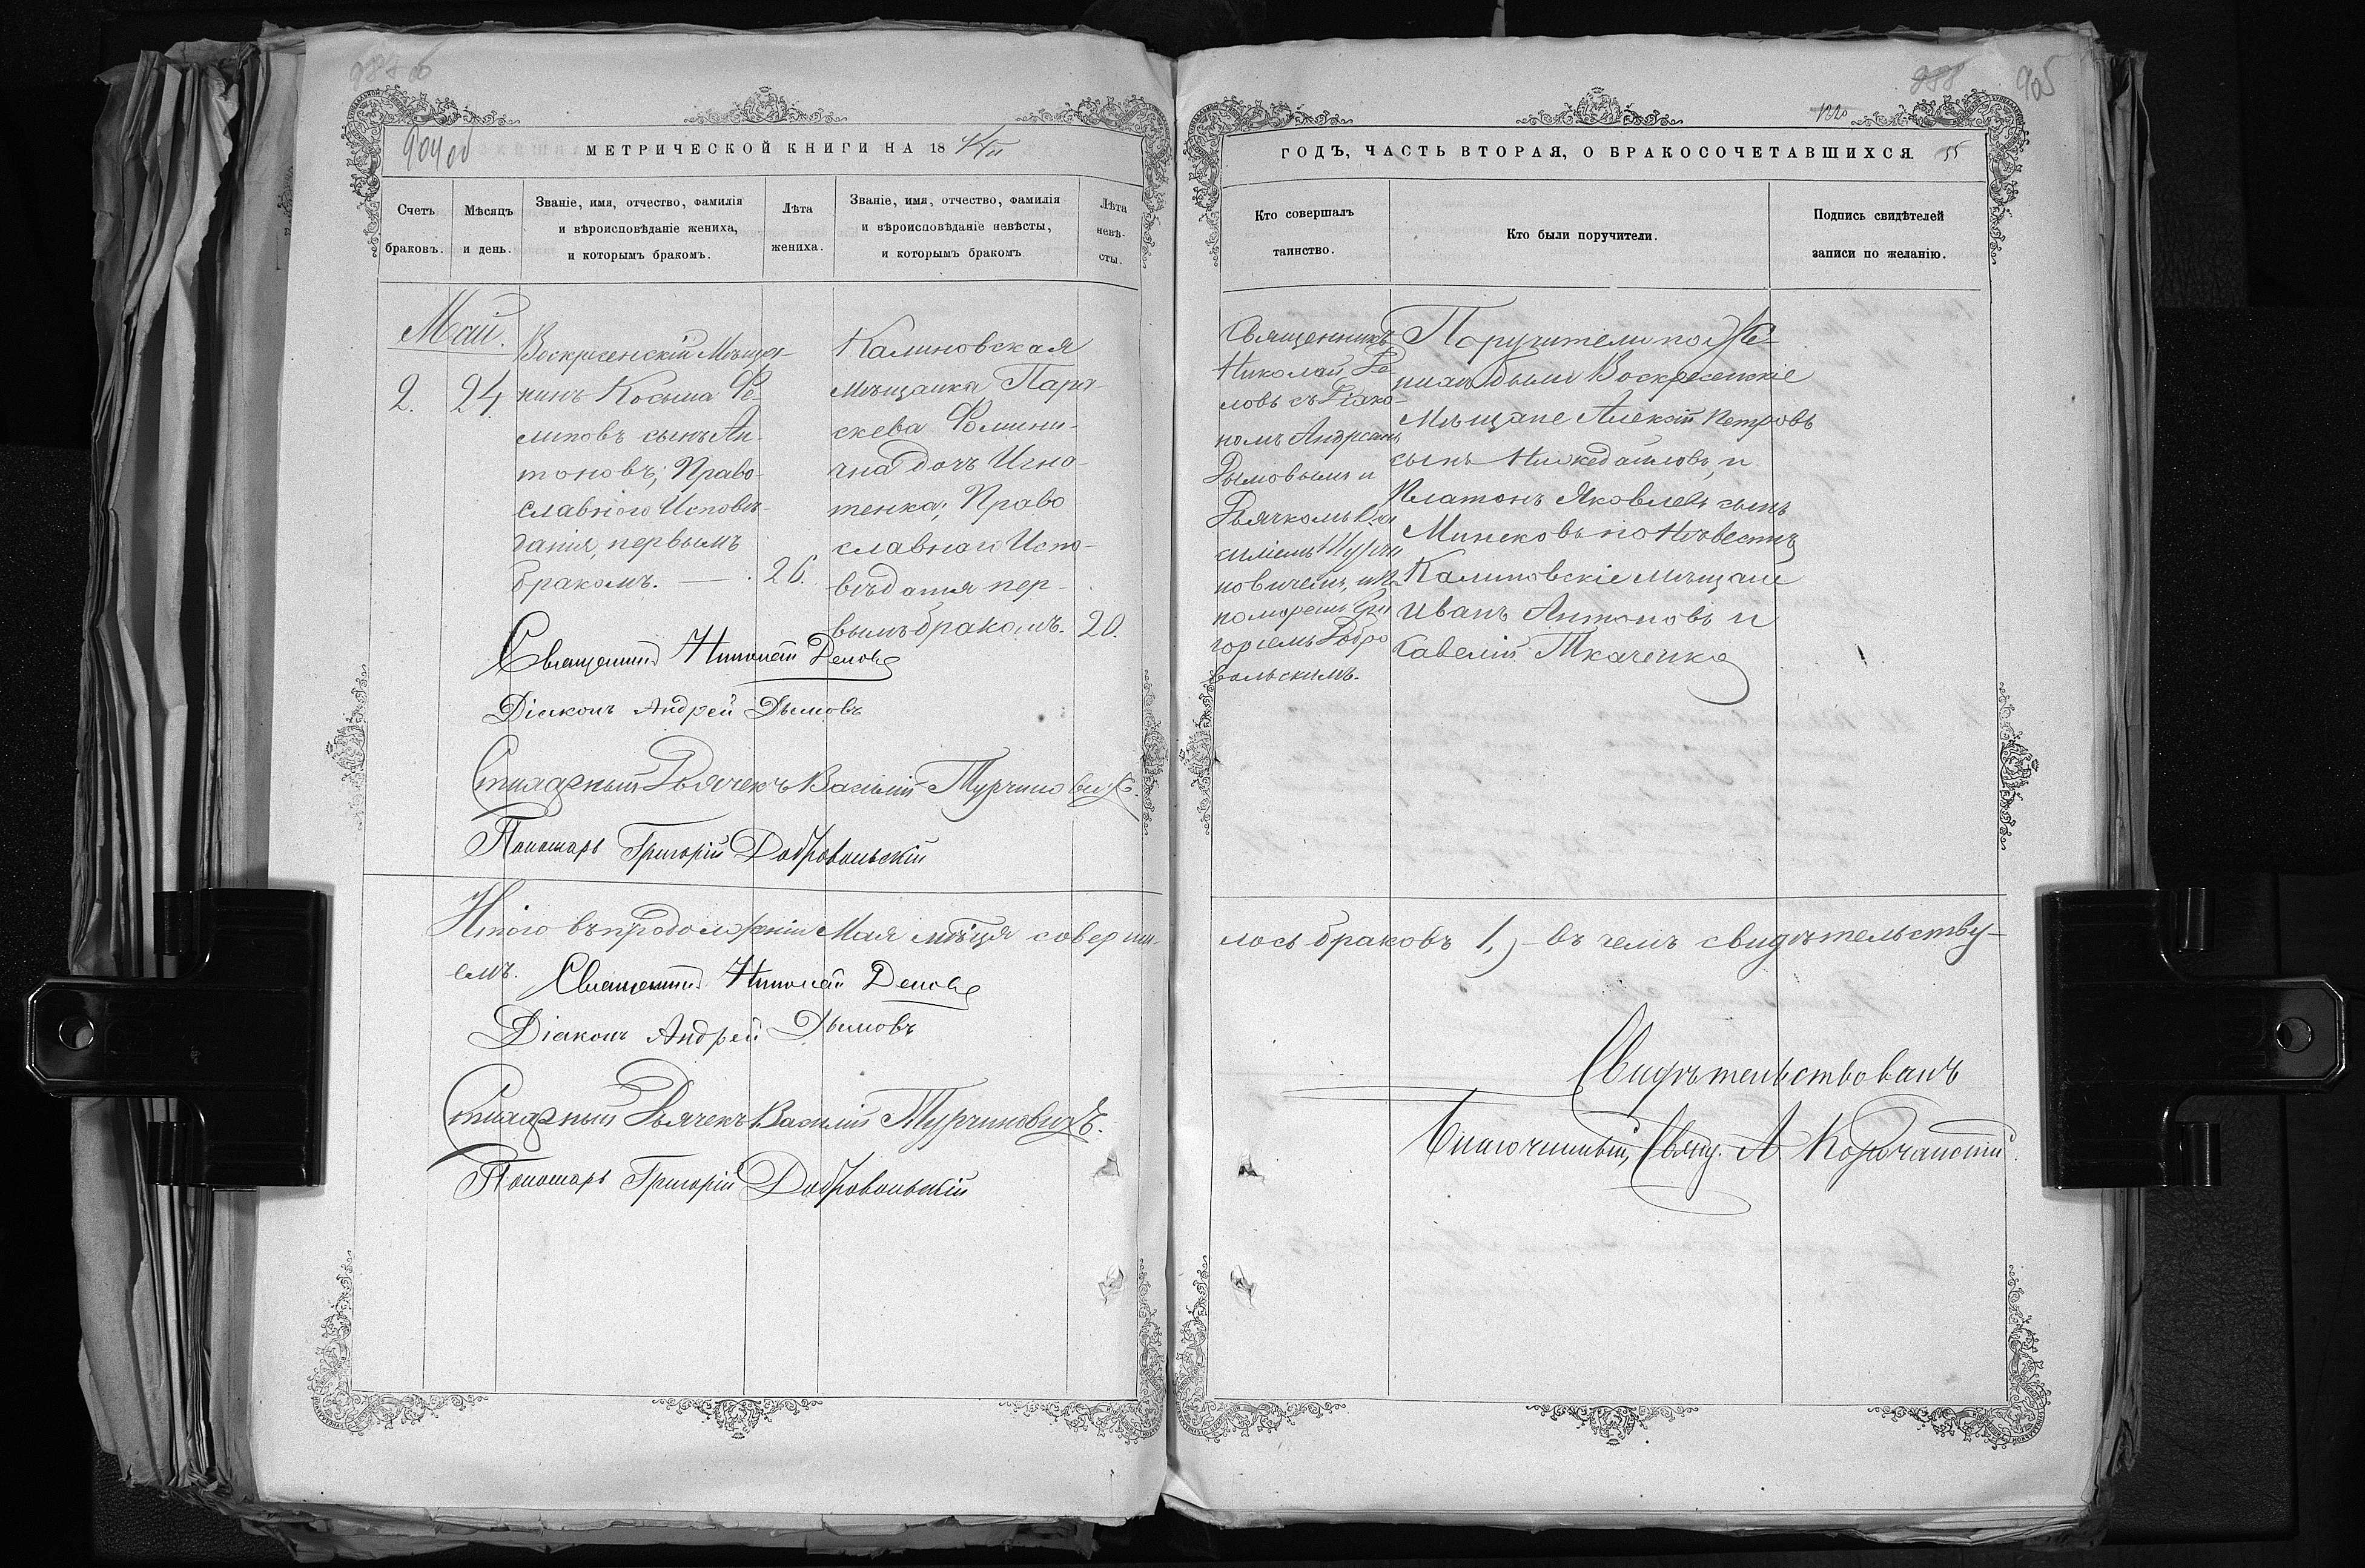 904 об
МЕТРИЧЕСКОЙ КНИГИ НА 18
Счетъ браковъ.
Мѣсяцъ и день.
Званіе, имя, отчество, фамилія
и вѣроисповѣданіе жениха,
и которымъ бракомъ.
Лѣта жениха.
Званіе, имя, отчество, фамилія
и вѣроисповѣданіе невѣсты,
и которымъ бракомъ
Лѣта невѣ- сты.
Май.
2. 24
Воскресенскій Мѣща-
нинъ Косьма Фе-
липовъ сынъ Ан-
тоновъ; Право-
славного Исповѣ-
данія, первымъ
бракомъ. — . 26.
Калиновская
Мѣщанка Пара-
скева Фомини-
чна дочь Игна-
тенка; Право
славнаго Испо-
вѣданія пер-
вымъ бракомъ. 20.
Священникъ Николай
Діаконъ Андрей Дымовъ
Дьячекъ Василій Турчиновичъ.
Пономарь Григорій Добровольскій
Итого въ продолженіи Мая мѣсяця соверши-
емъ. Священникъ Николай
Діаконъ Андрей Дымовъ
Дьячекъ Василій Турчиновичъ.
Пономарь Григорій Добровольскій
888 905
ГОДЪ, ЧАСТЬ ВТОРАЯ, О БРАКОСОЧЕТАВШИХСЯ. 55
Кто совершалъ
таинство.
Кто были поручители.
Подпись свидѣтелей
записи по желанію.
Священникъ
Николай
ловъ съ Діако-
номъ Андреемъ
Дымовымъ и
Дьячкомъ Ва
силіемъ Турчи
новичемъ, и По
номаремъ Гри
горіемъ Добро
вольскимъ.
Поручители по Же-
нихѣ были Воскресенскіе
Мѣщане Алексій Петровъ
сынъ и
Платонъ Яковлевъ сынъ
Минековъ по Невестѣ
Калиновскіе мѣщане
Иванъ Антоновъ и
Савелій Ткаченко
лось браковъ 1,) - въ чемъ свидѣтельству-
Свидѣтельствовалъ
Благочинный, Свящ. А